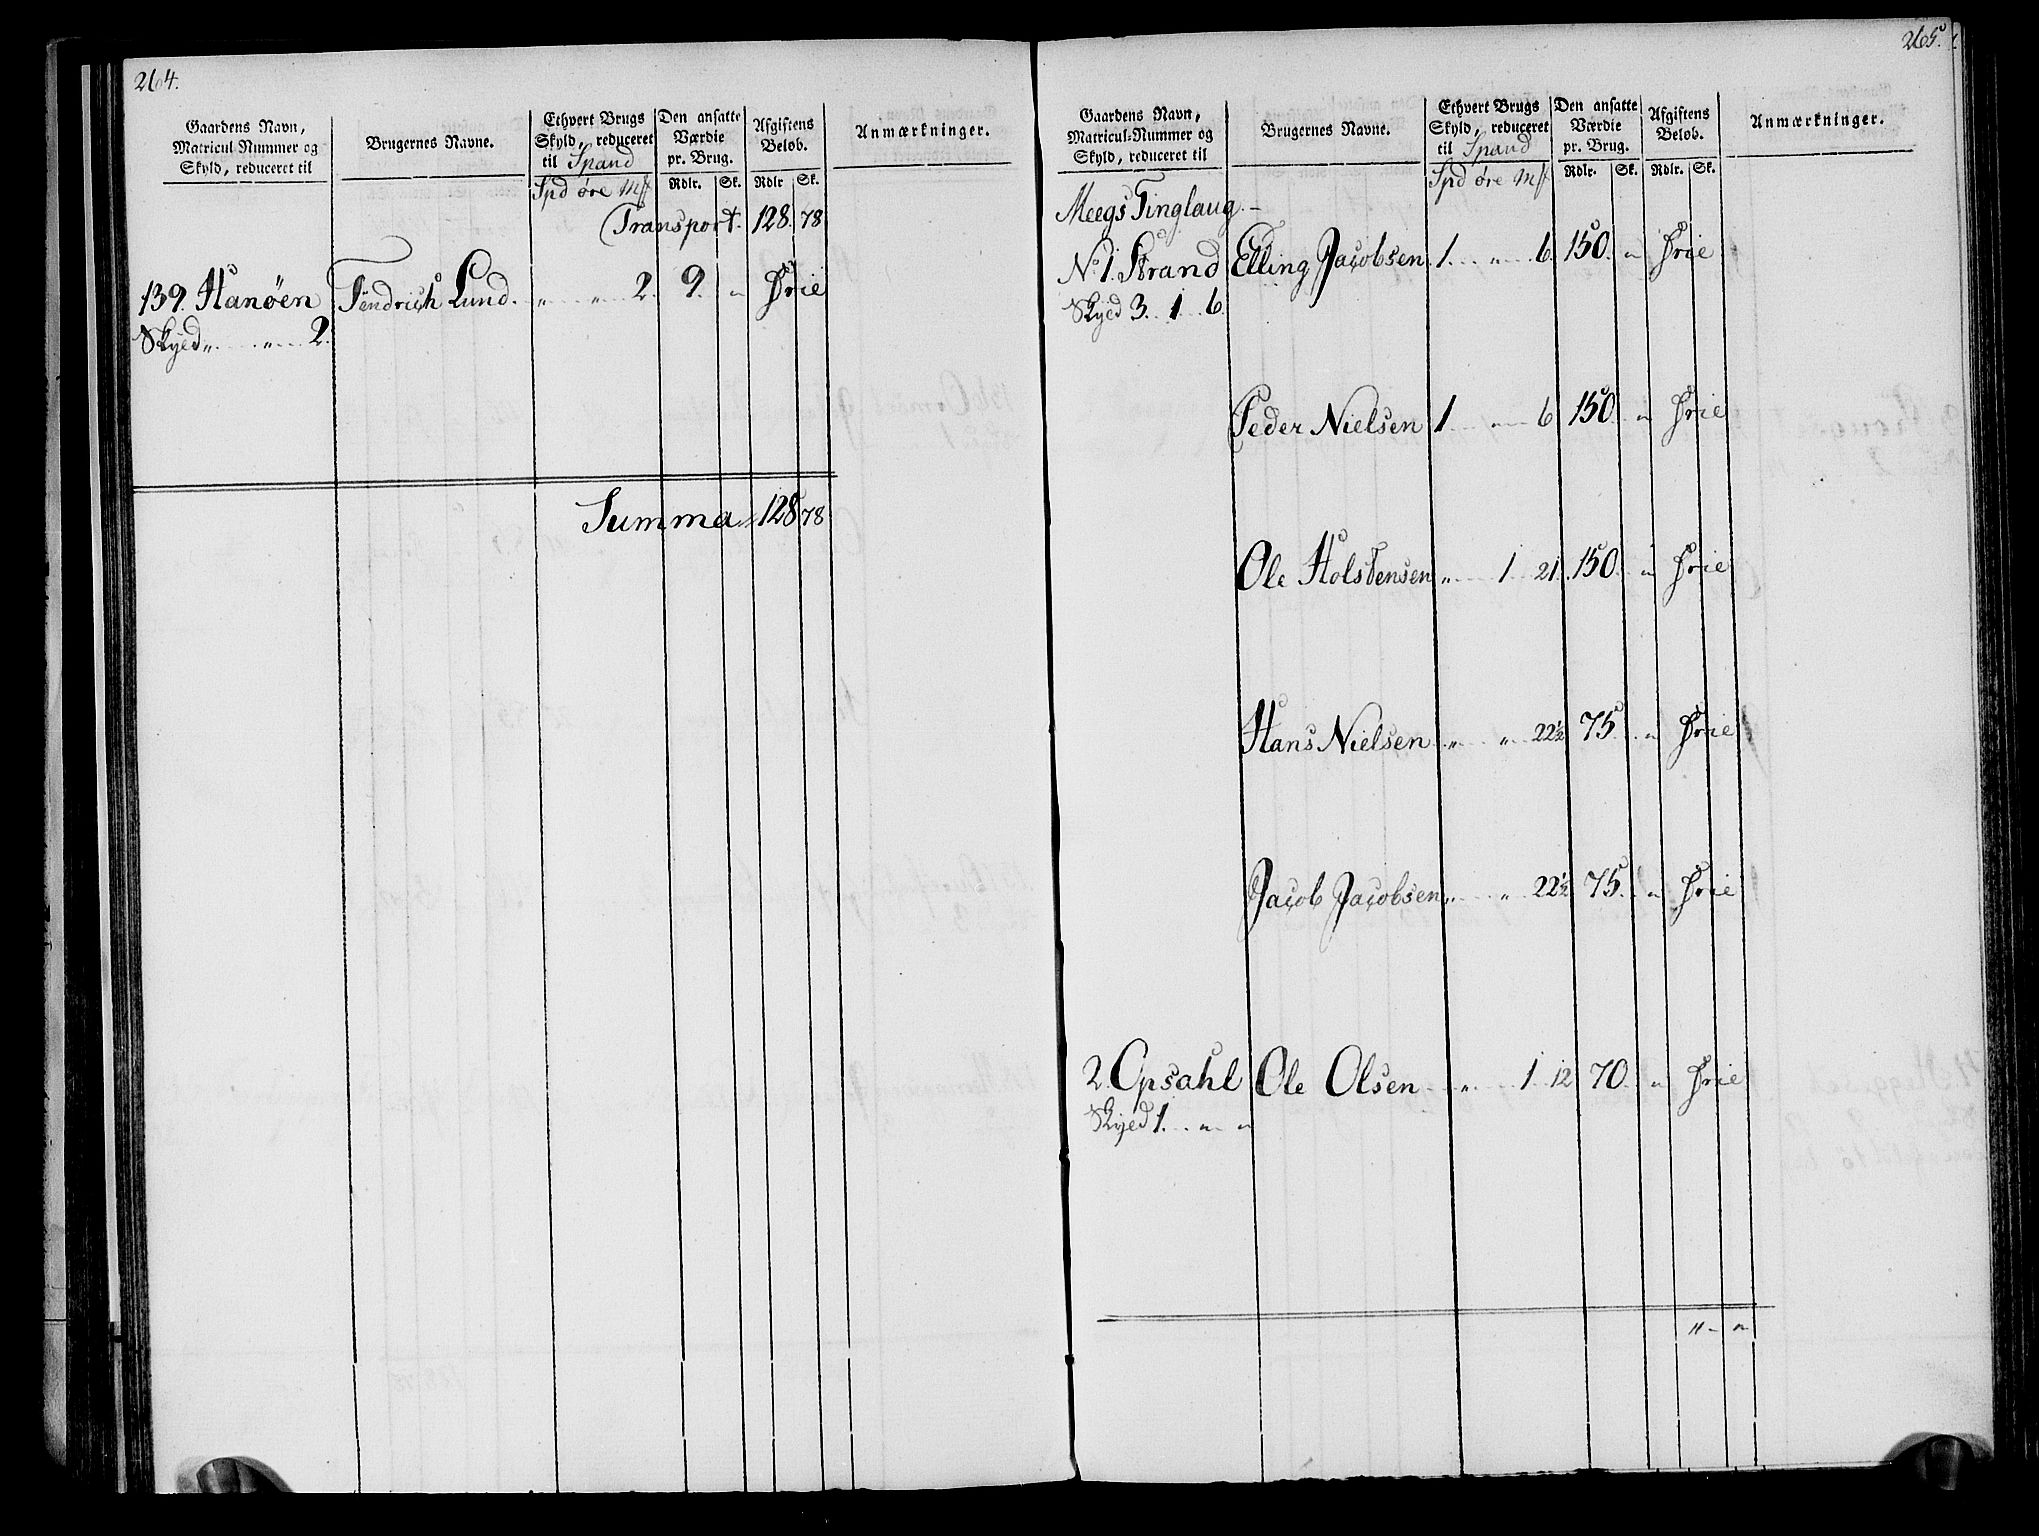 264.
Gaardens Navn, Matricul-Nummer og Skyld, reduceret til
Brugernes Navne.
Ethvert Brugs Skyld, reduceret til Spand
Spd öre Mk
Den ansatte Værdie pr. Brug.
Rdlr. Sk.
Afgiftens Beløb.
Rdlr Sk.
Anmærkninger.
Transport. 128. 78
139. Hanøen Hendrich Lund. " " 2. 9. " Frie
Skyld " " 2.
Summa 128 78
265.
Gaardens Navn, Matricul-Nummer og Skyld, reduceret til
Brugernes Navne.
Ethvert Brugs Skyld, reduceret til Spand
Spd öre Mk
Den ansatte Værdie pr. Brug.
Rdlr. Sk.
Afgiftens Beløb.
Rdlr. Sk.
Anmærkninger.
Meegs Tinglaug.
No 1. Strand Elling Jacobsen 1. " 6. 150. " Frie
Skyld 3. 1 6.
Peder Nielsen 1 " 6 150. " Frie
Ole Holstensen " 1 21. 150. " Frie
Hans Nielsen " " 22½ 75. " Frie
Jacob Jacobsen " " 22½ 75. " Frie
2. Opsahl Ole Olsen " 1 12 70. " Frie
Skyld 1. " "
" "